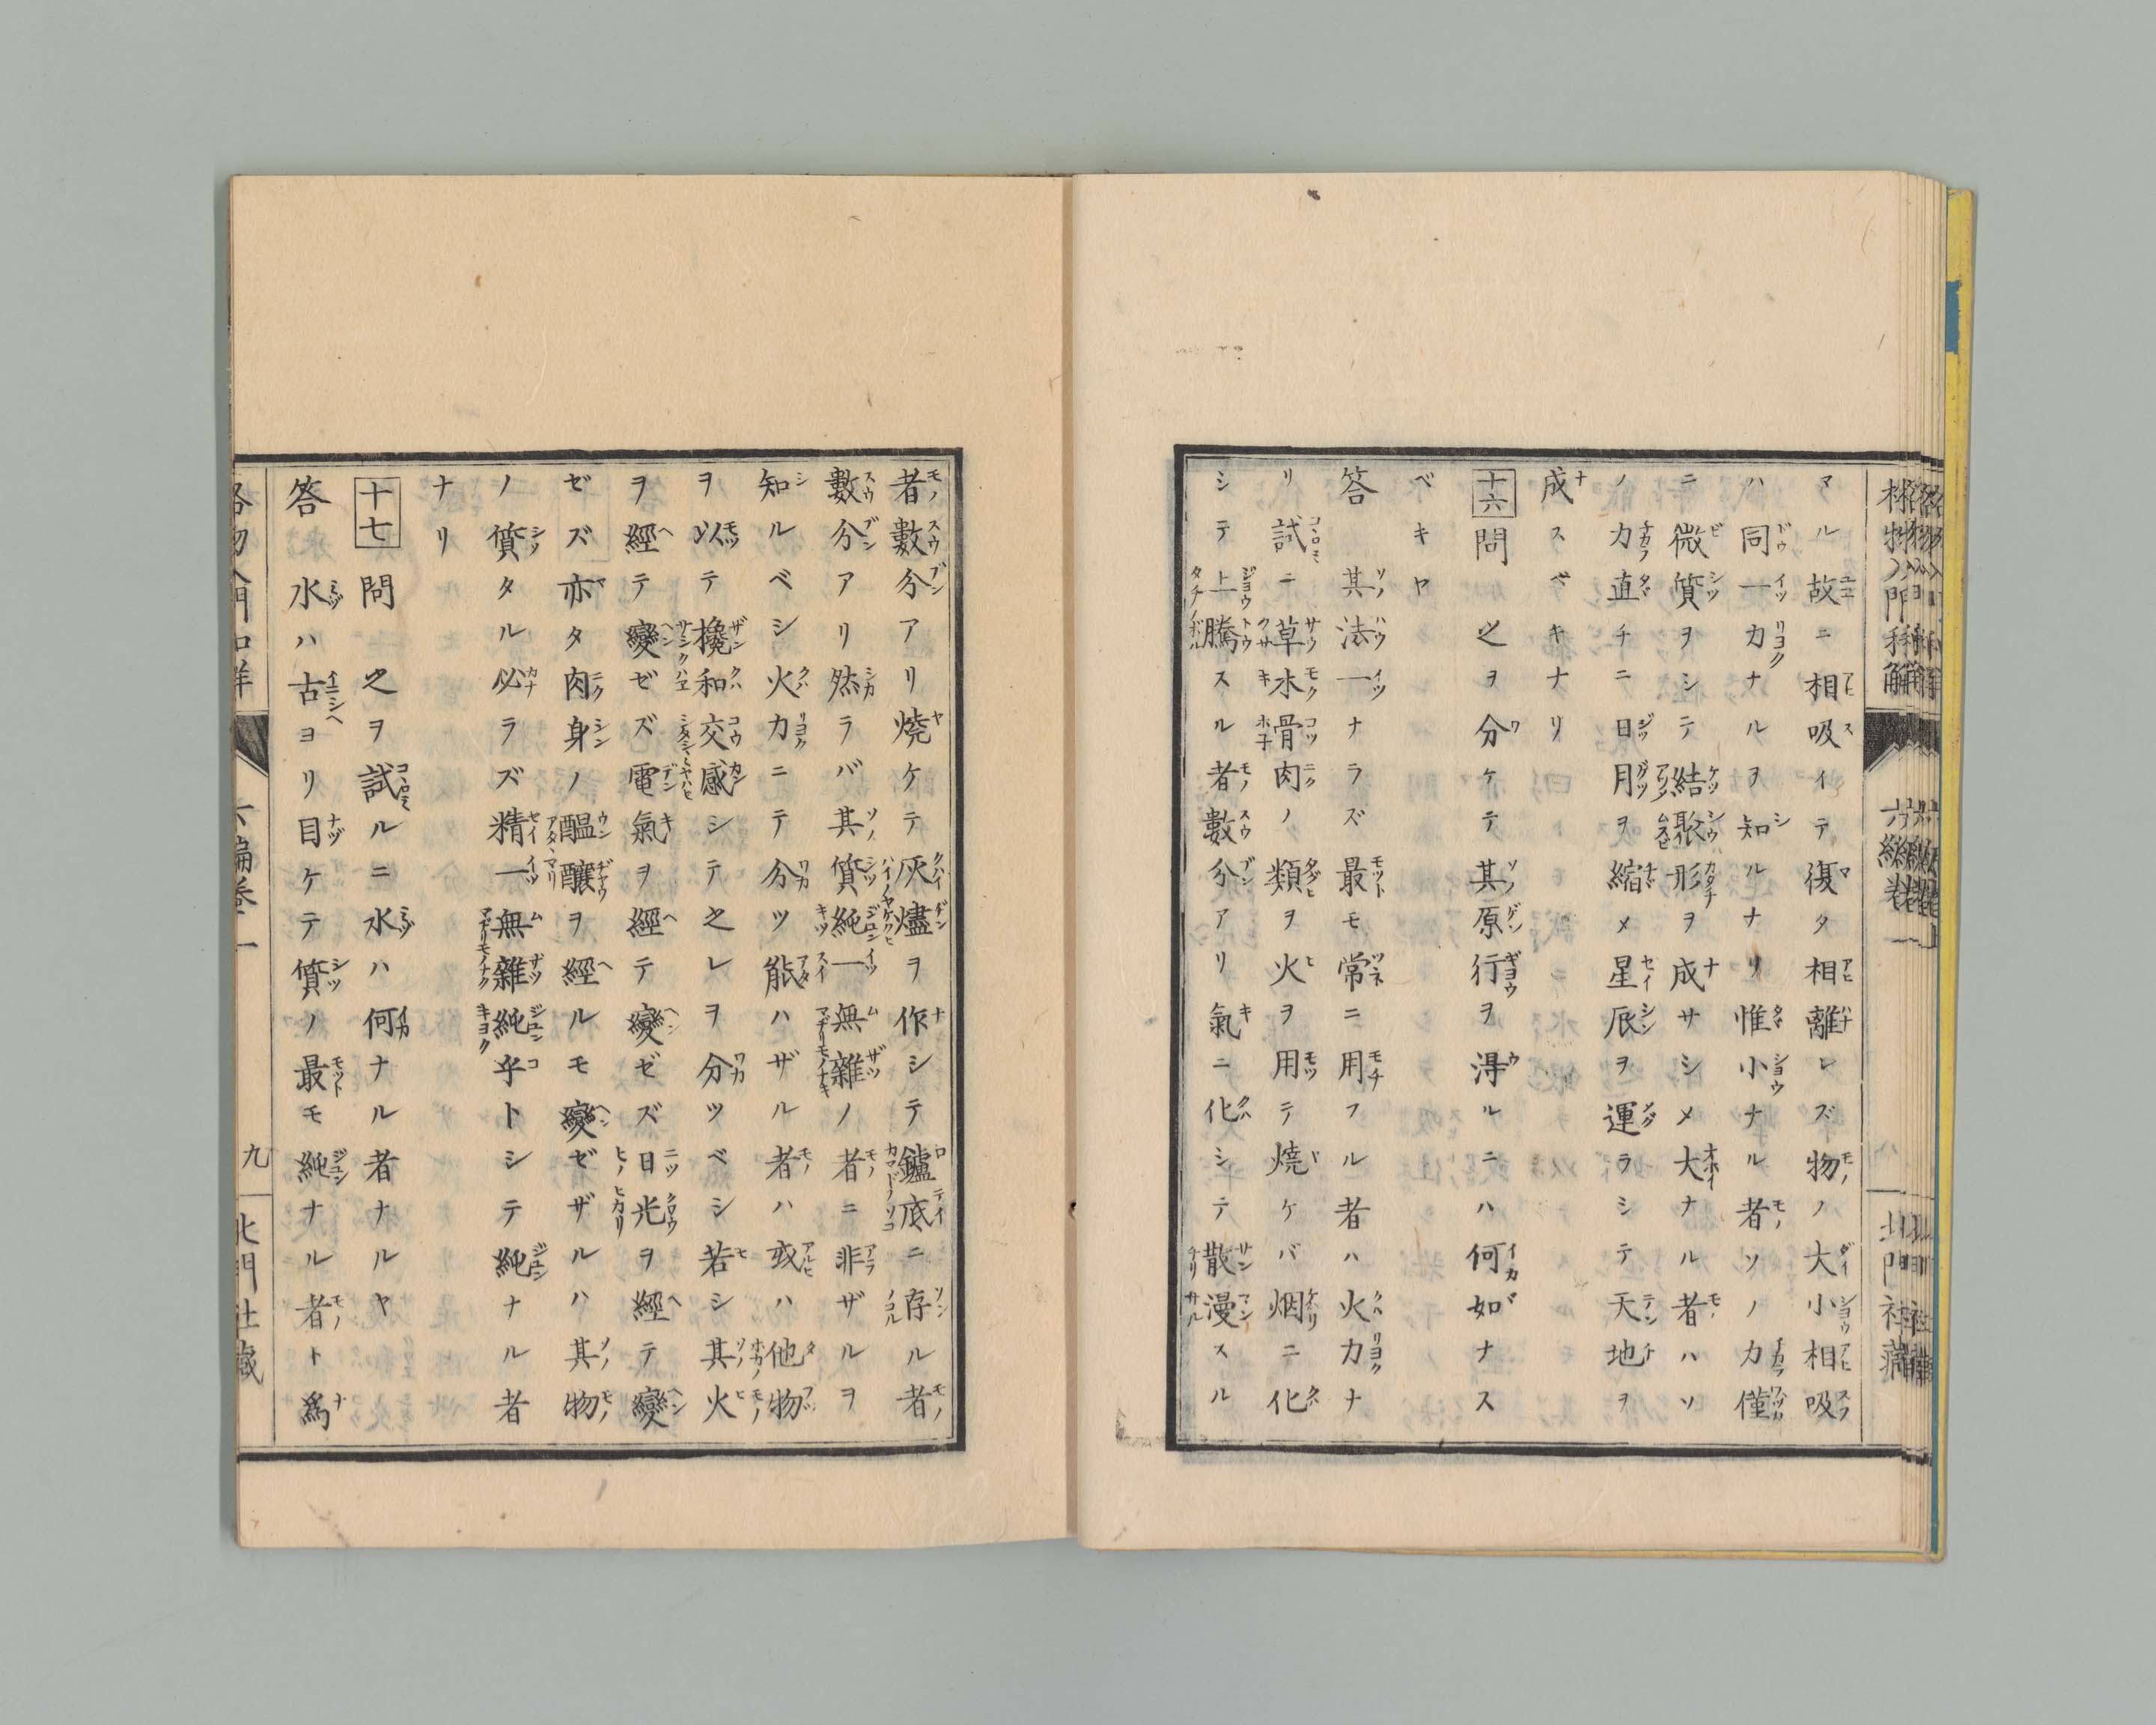 マル故ニ相吸イテ復タ相離レズ物ノ大小相吸
ハ同一力ナルヲ知ルナリ惟小ナル者ソノ力僅
ニ微質ヲシテ結聚形ヲ成サシメ大ナル者ハソ
ノ力直チニ日月ヲ縮メ星辰ヲ運ラシテ天地ヲ
成スベキナリ
十六問之ヲ分ケテ其原行ヲ得ルニハ何如ナス
ベキヤ
答其法一ナラズ最モ常ニ用フル者ハ火力ナ
リ試ニ草木骨肉ノ類ヲ火ヲ用テ焼ケバ烟ニ化
シテ上騰スル者數分アリ氣ニ化シテ散漫スル
者數分アリ燒ケテ灰燼ヲ作シテ鑪底ニ存ル者
數分アリ然ラバ其質純一無雜ノ者ニ非ザルヲ
知ルベシ火力ニテ分ツ能ハザル者ハ或ハ他物
ヲ以テ攙和交感シテ之レヲ分ツベシ若シ其火
ヲ經テ變ゼズ電氣ヲ經テ變ゼズ日光ヲ經テ變
ゼズ亦タ肉身ノ醞釀ヲ經ルモ變ゼザルハ其物
ノ質タル必ラズ精一無雜純乎トシテ純ナル者
ナリ
十七問之ヲ試ルニ水ハ何ナル者ナルヤ
答水ハ古ヨリ目ケテ質ノ最モ純ナル者ト爲
九